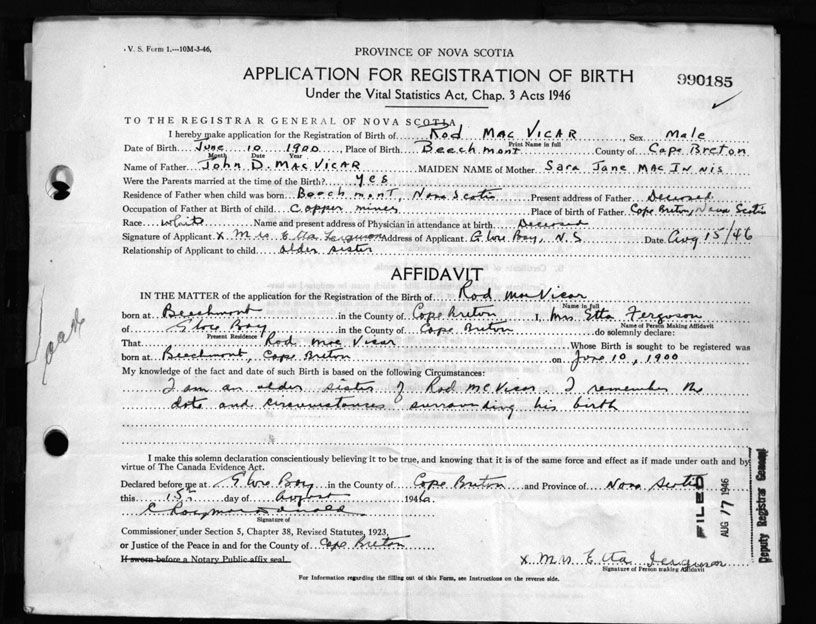 V. S. Form 1.—10M-3-46.
PROVINCE OF NOVA SCOTIA
APPLICATION FOR REGISTRATION OF BIRTH
990185
Under the Vital Statistics Act, Chap. 3 Acts 1946
TO THE REGISTRAR GENERAL OF NOVA SCOTIA
I hereby make application for the Registration of Birth of Rod Mac Vicar, Sex Male
Print Name in full
Date of Birth June 10 1900 Place of Birth Beechmont County of Cape Breton
Month Date Year
Name of Father John D. MacVicar MAIDEN NAME of Mother Sara Jane MacInnis
Were the Parents married at the time of the Birth? yes
Residence of Father when child was born Beechmont, Nova Scotia Present address of Father Deceased
Occupation of Father at Birth of child Copper miner Place of birth of Father Cape Breton, Nova Scotia
Race white Name and present address of Physician in attendance at birth Deceased
Signature of Applicant x Mrs Etta Ferguson Address of Applicant Glace Bay, N.S Date Aug 15/46
Relationship of Applicant to child older sister
AFFIDAVIT
IN THE MATTER of the application for the Registration of the Birth of Rod MacVicar
Name in full
born at Beechmont in the County of Cape Breton I, Mrs Etta Ferguson
Name of Person Making Affidavit
of Glace Bay in the County of Cape Breton do solemnly declare:
Present Residence
That Rod Mac Vicar Whose Birth is sought to be registered was
born at Beechmont, Cape Breton on June 10, 1900
My knowledge of the fact and date of such Birth is based on the following Circumstances:
I am an older sister of Rod McVicar. I remember the
date and circumstances surrounding his birth
I make this solemn declaration conscientiously believing it to be true, and knowing that it is of the same force and effect as if made under oath and by
virtue of The Canada Evidence Act.
Declared before me at Glace Bay in the County of Cape Breton and Province of Nova Scotia
this 15th day of August 1946
Signature of
Commissioner under Section 5, Chapter 38, Revised Statutes, 1923,
or Justice of the Peace in and for the County of Cape Breton
If sworn before a Notary Public affix seal.
x Mrs Etta Ferguson
Signature of Person making Affidavit
For Information regarding the filling out of this Form, see Instructions on the reverse side.
FILED
AUG 17 1946
Deputy Registrar General